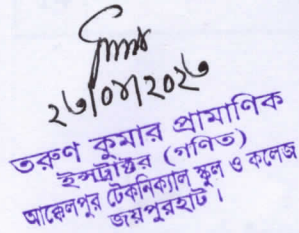 ২৩/০৪/২০২৩
তরুণ কুমার প্রামাণিক
ইন্সট্রাক্টর (গণিত)
আক্কেলপুর টেকনিক্যাল স্কুল ও কলেজ
জয়পুরহাট।